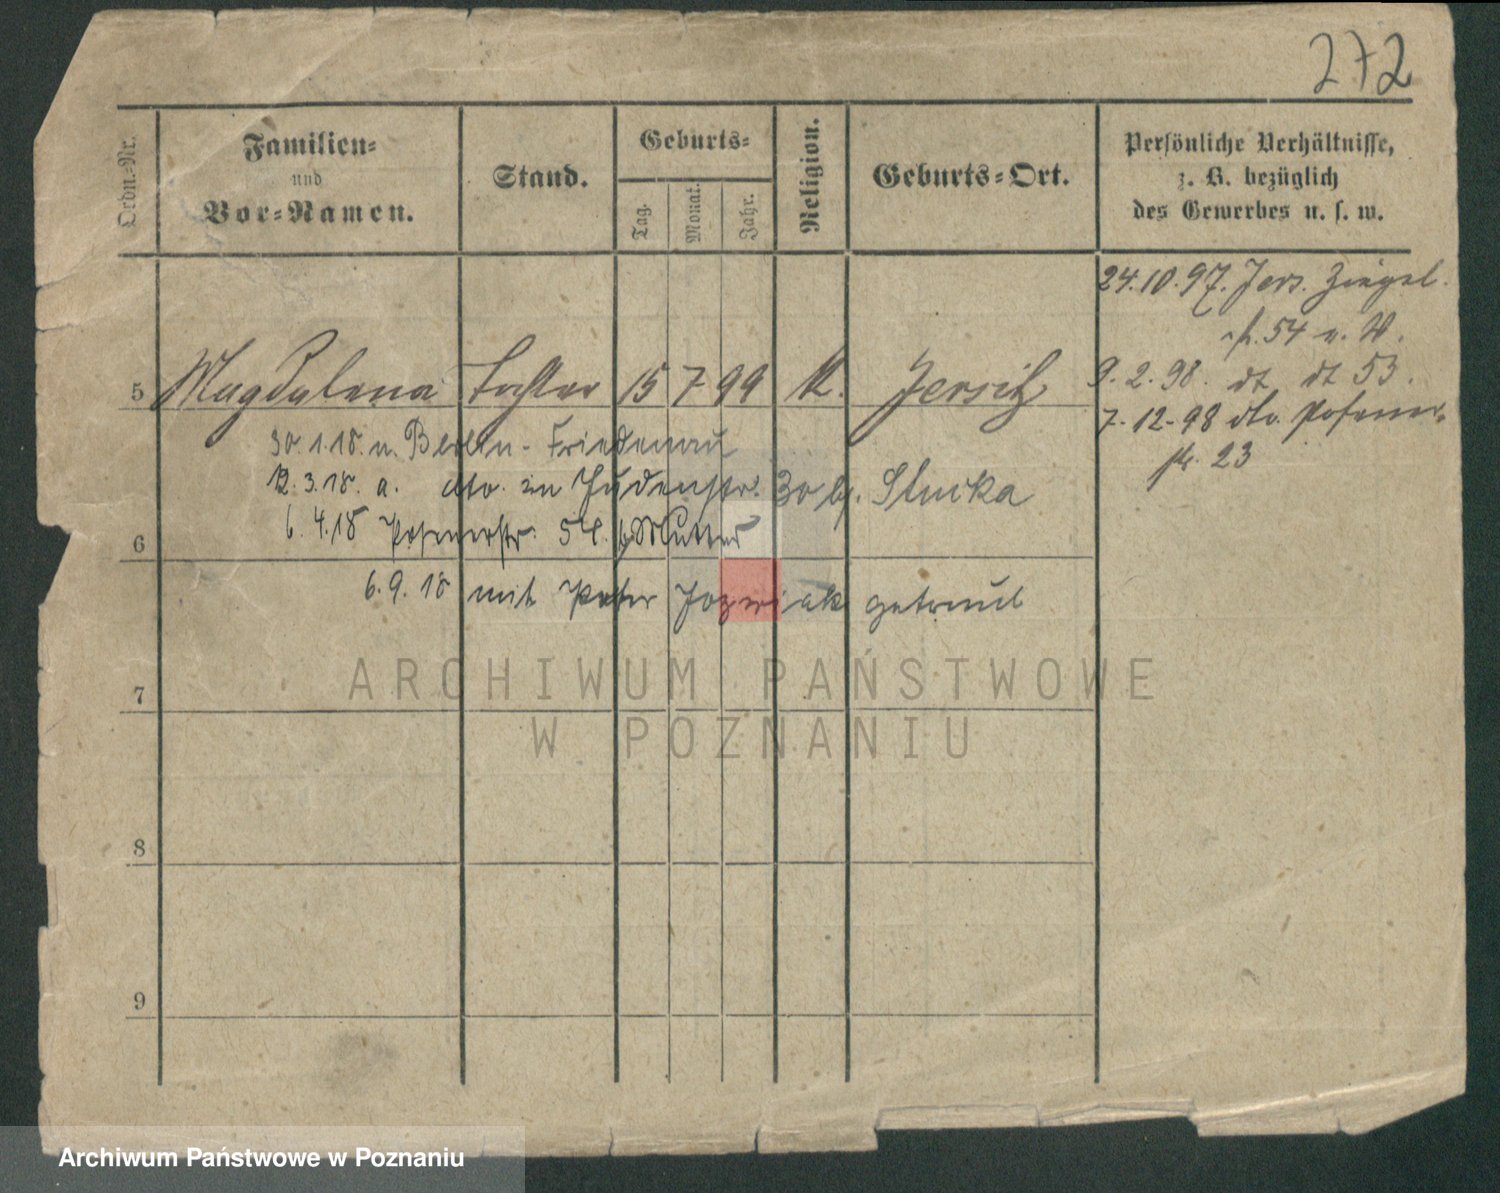 272
Ordn.-Nr.
Familien-
und
Vor-Namen.
Stand.
Geburts-
Tag.
Monat.
Jahr.
Religion.
Geburts-Ort.
Persönliche Verhältnisse,
z. B. bezüglich
des Gewerbes u. s. w.
24.10.97. Jers. Ziegel-
str. 54 n. W.
5 Magdalena Tochter 15 7 99 K. Jersitz
9.2.98. dt dt 53.
7.12.98 dto. Posener-
str. 23
30.1.18. n. Berlin-Friedenau
12.3.18. a. dto. in Judenstr. 30 bj. Slucka
6.4.18 Posenerstr. 54. b Mutter
6
6.9.18 mit Peter Jozwiak getraut
7
8
9
ARCHIWUM PAŃSTWOWE
W POZNANIU
Archiwum Państwowe w Poznaniu